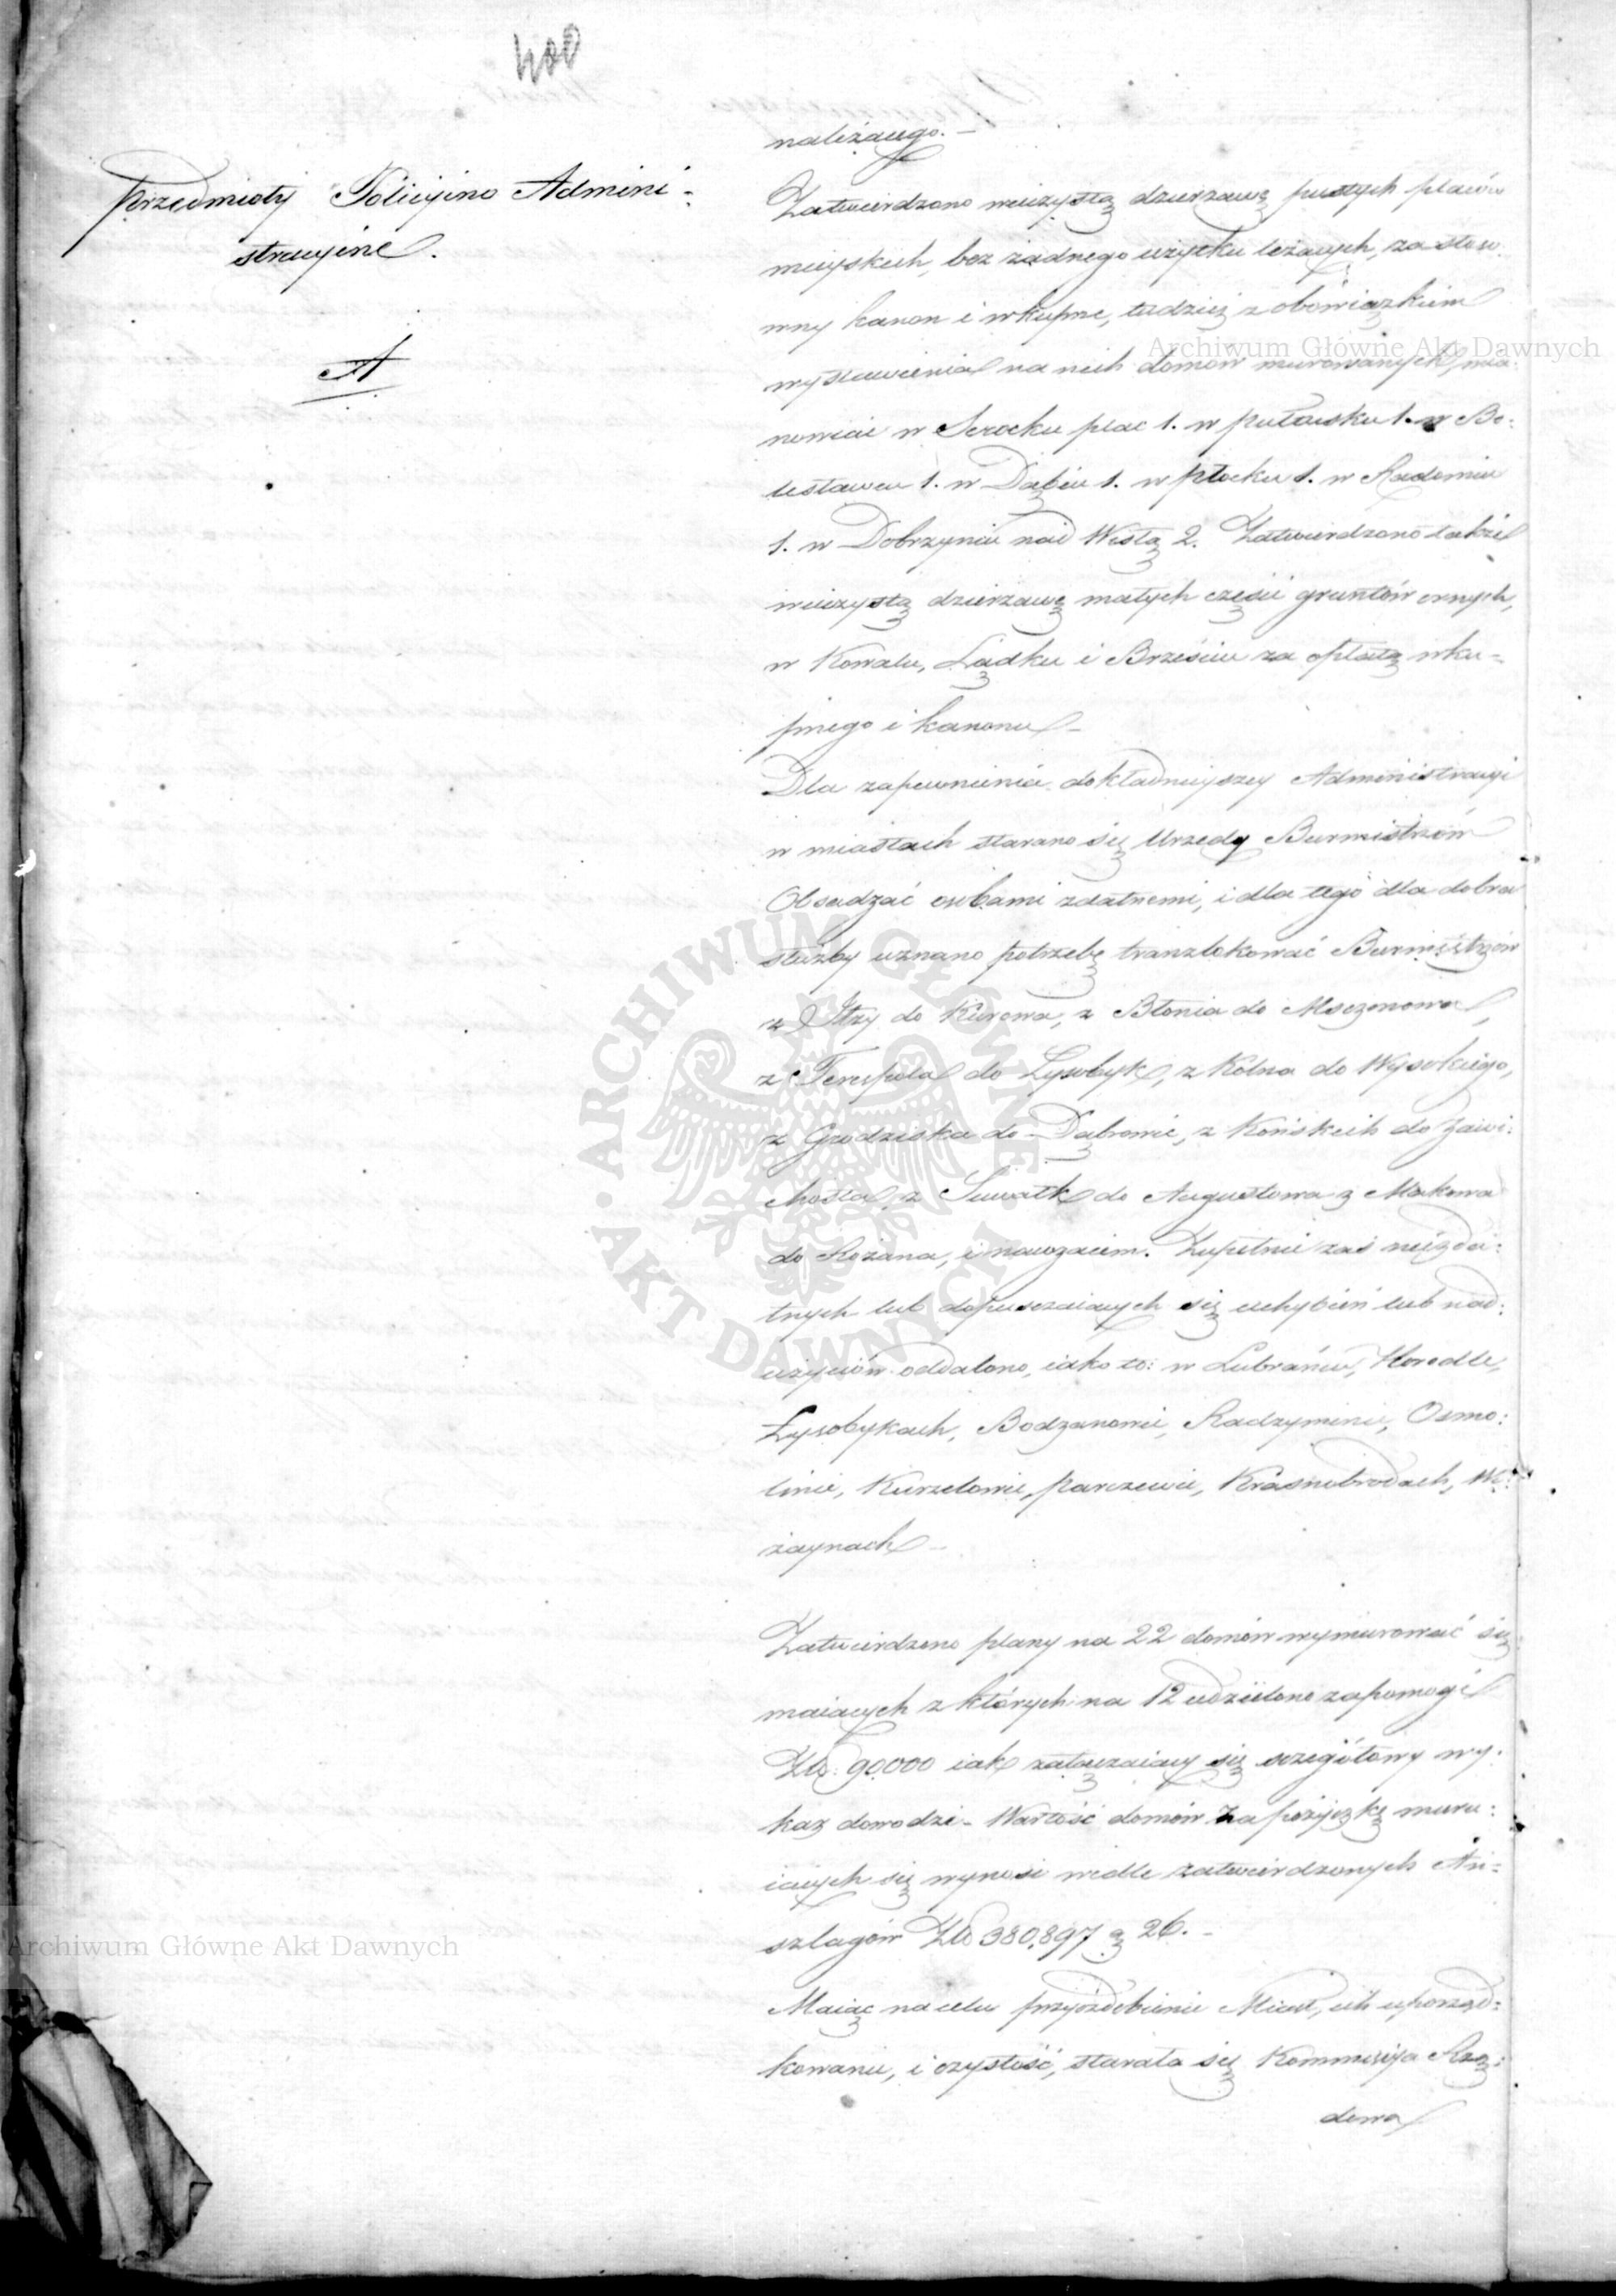 400
Przedmioty Policyino Admini-
stracyine.
A
należącego. —
Zatwierdzono wieczystą dzierzawę pustych placów
mieyskich, bez żadnego użytku leżących, za stoso-
wny kanon i wkupne, tudzież z obowiązkiem
wystawienia na nich domów murowanych, mia-
nowicie w Serocku plac 1. w Pułtusku 1. w Bo-
lesławcu 1. w Dąbiu 1. w Płocku 1. w Radomiu
1. w Dobrzyniu nad Wisłą 2. Zatwierdzono także
wieczystą dzierzawę małych części gruntów ornych,
w Kowalu, Lądku i Brześciu za opłatą wku-
pnego i kanonu —
Dla zapewnienia dokładnieyszey Administracyi
w miastach starano się Urzędy Burmistrzów
Obsadzać osobami zdatnemi, i dla tego dla dobra
służby uznano potrzebę translokować Burmistrzów
z Iłży do Kurowa, z Błonia do Mszczonowa,
z Terespola do Łysobyk, z Kolna do Wysokiego,
z Grodziska do Dąbrowic, z Końskich do Zawi-
chosta, z Suwałk do Augustowa z Makowa
do Rożana, i nawzaiem. Zupełnie zaś niezda-
tnych lub dopuszczaiących się uchybień lub nad-
użyciów oddalono, iako to: w Lubrańcu, Horodle,
Łysobykach, Bodzanowie, Radzyminie, Osmo-
linie, Kurzelowie, Parczewie, Krasnobrodach, Wi-
żaynach —
Zatwierdzono plany na 22 domów wymurować się
maiących z których na 12 udzielono zapomogi
Złp. 90.000 iak załączaiący się szczegółowy wy-
kaz dowodzi — Wartość domów za pożyczkę muru-
iących się wynosi wedle zatwierdzonych An-
szlagów Złp 380.897 g 26. —
Maiąc na celu przyozdobienie Miast, ich uporząd-
kowanie, i czystość, starała się Kommissyia Rzą-
dowa
Archiwum Główne Akt Dawnych
ARCHIWUM GŁÓWNE AKT DAWNYCH
Archiwum Główne Akt Dawnych